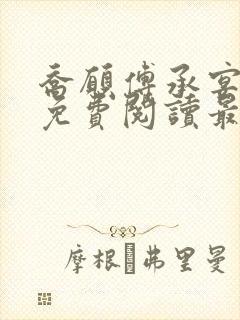 喬願傅承宴
免費閱讀最
摩根弗里曼